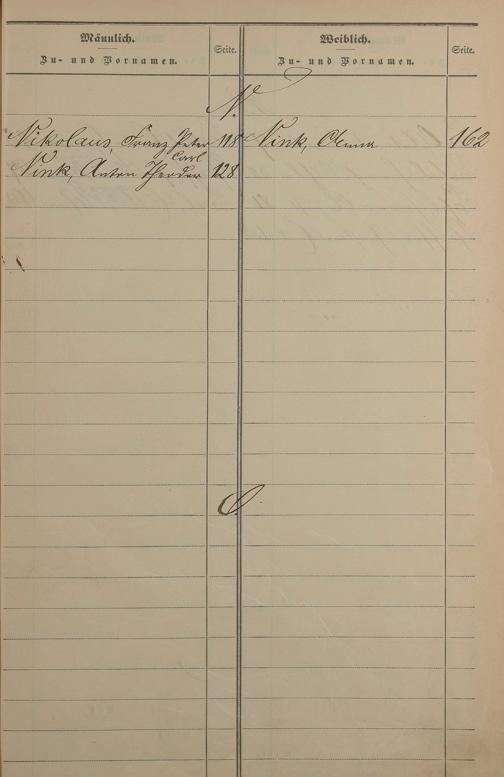 Männlich. Seite. Weiblich. Seite.
Zu- und Vornamen. Zu- und Vornamen.
N.
Nikolaus, Franz Peter 118 Nink, Anna 162
Carl
Nink, Anton Theodor 128
O.